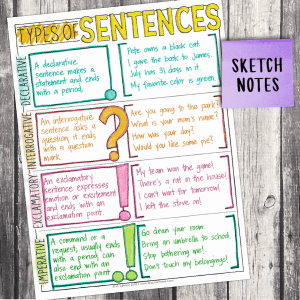 TYPES OF SENTENCES
DECLARATIVE
A declarative
sentence makes a
statement and ends
with a period.
Pete owns a black cat.
I gave the book to James.
July has 31 days in it.
My favorite color is green.
SKETCH
NOTES
INTERROGATIVE
An interrogative
sentence asks a
question, it ends
with a question
mark.
Are you going to the park?
What is your mom's name?
How was your day?
Would you like some pie?
EXCLAMATORY
An exclamatory
sentence expresses
emotion or excitement
and ends with an
exclamation point.
My team won the game!
There's a rat in the house!
I can't wait for tomorrow!
I left the stove on!
IMPERATIVE
A command or a
request, usually ends
with a period, can
also end with an
exclamation point.
Go clean your room.
Bring an umbrella to school.
Stop bothering me!
Don't touch my belongings!